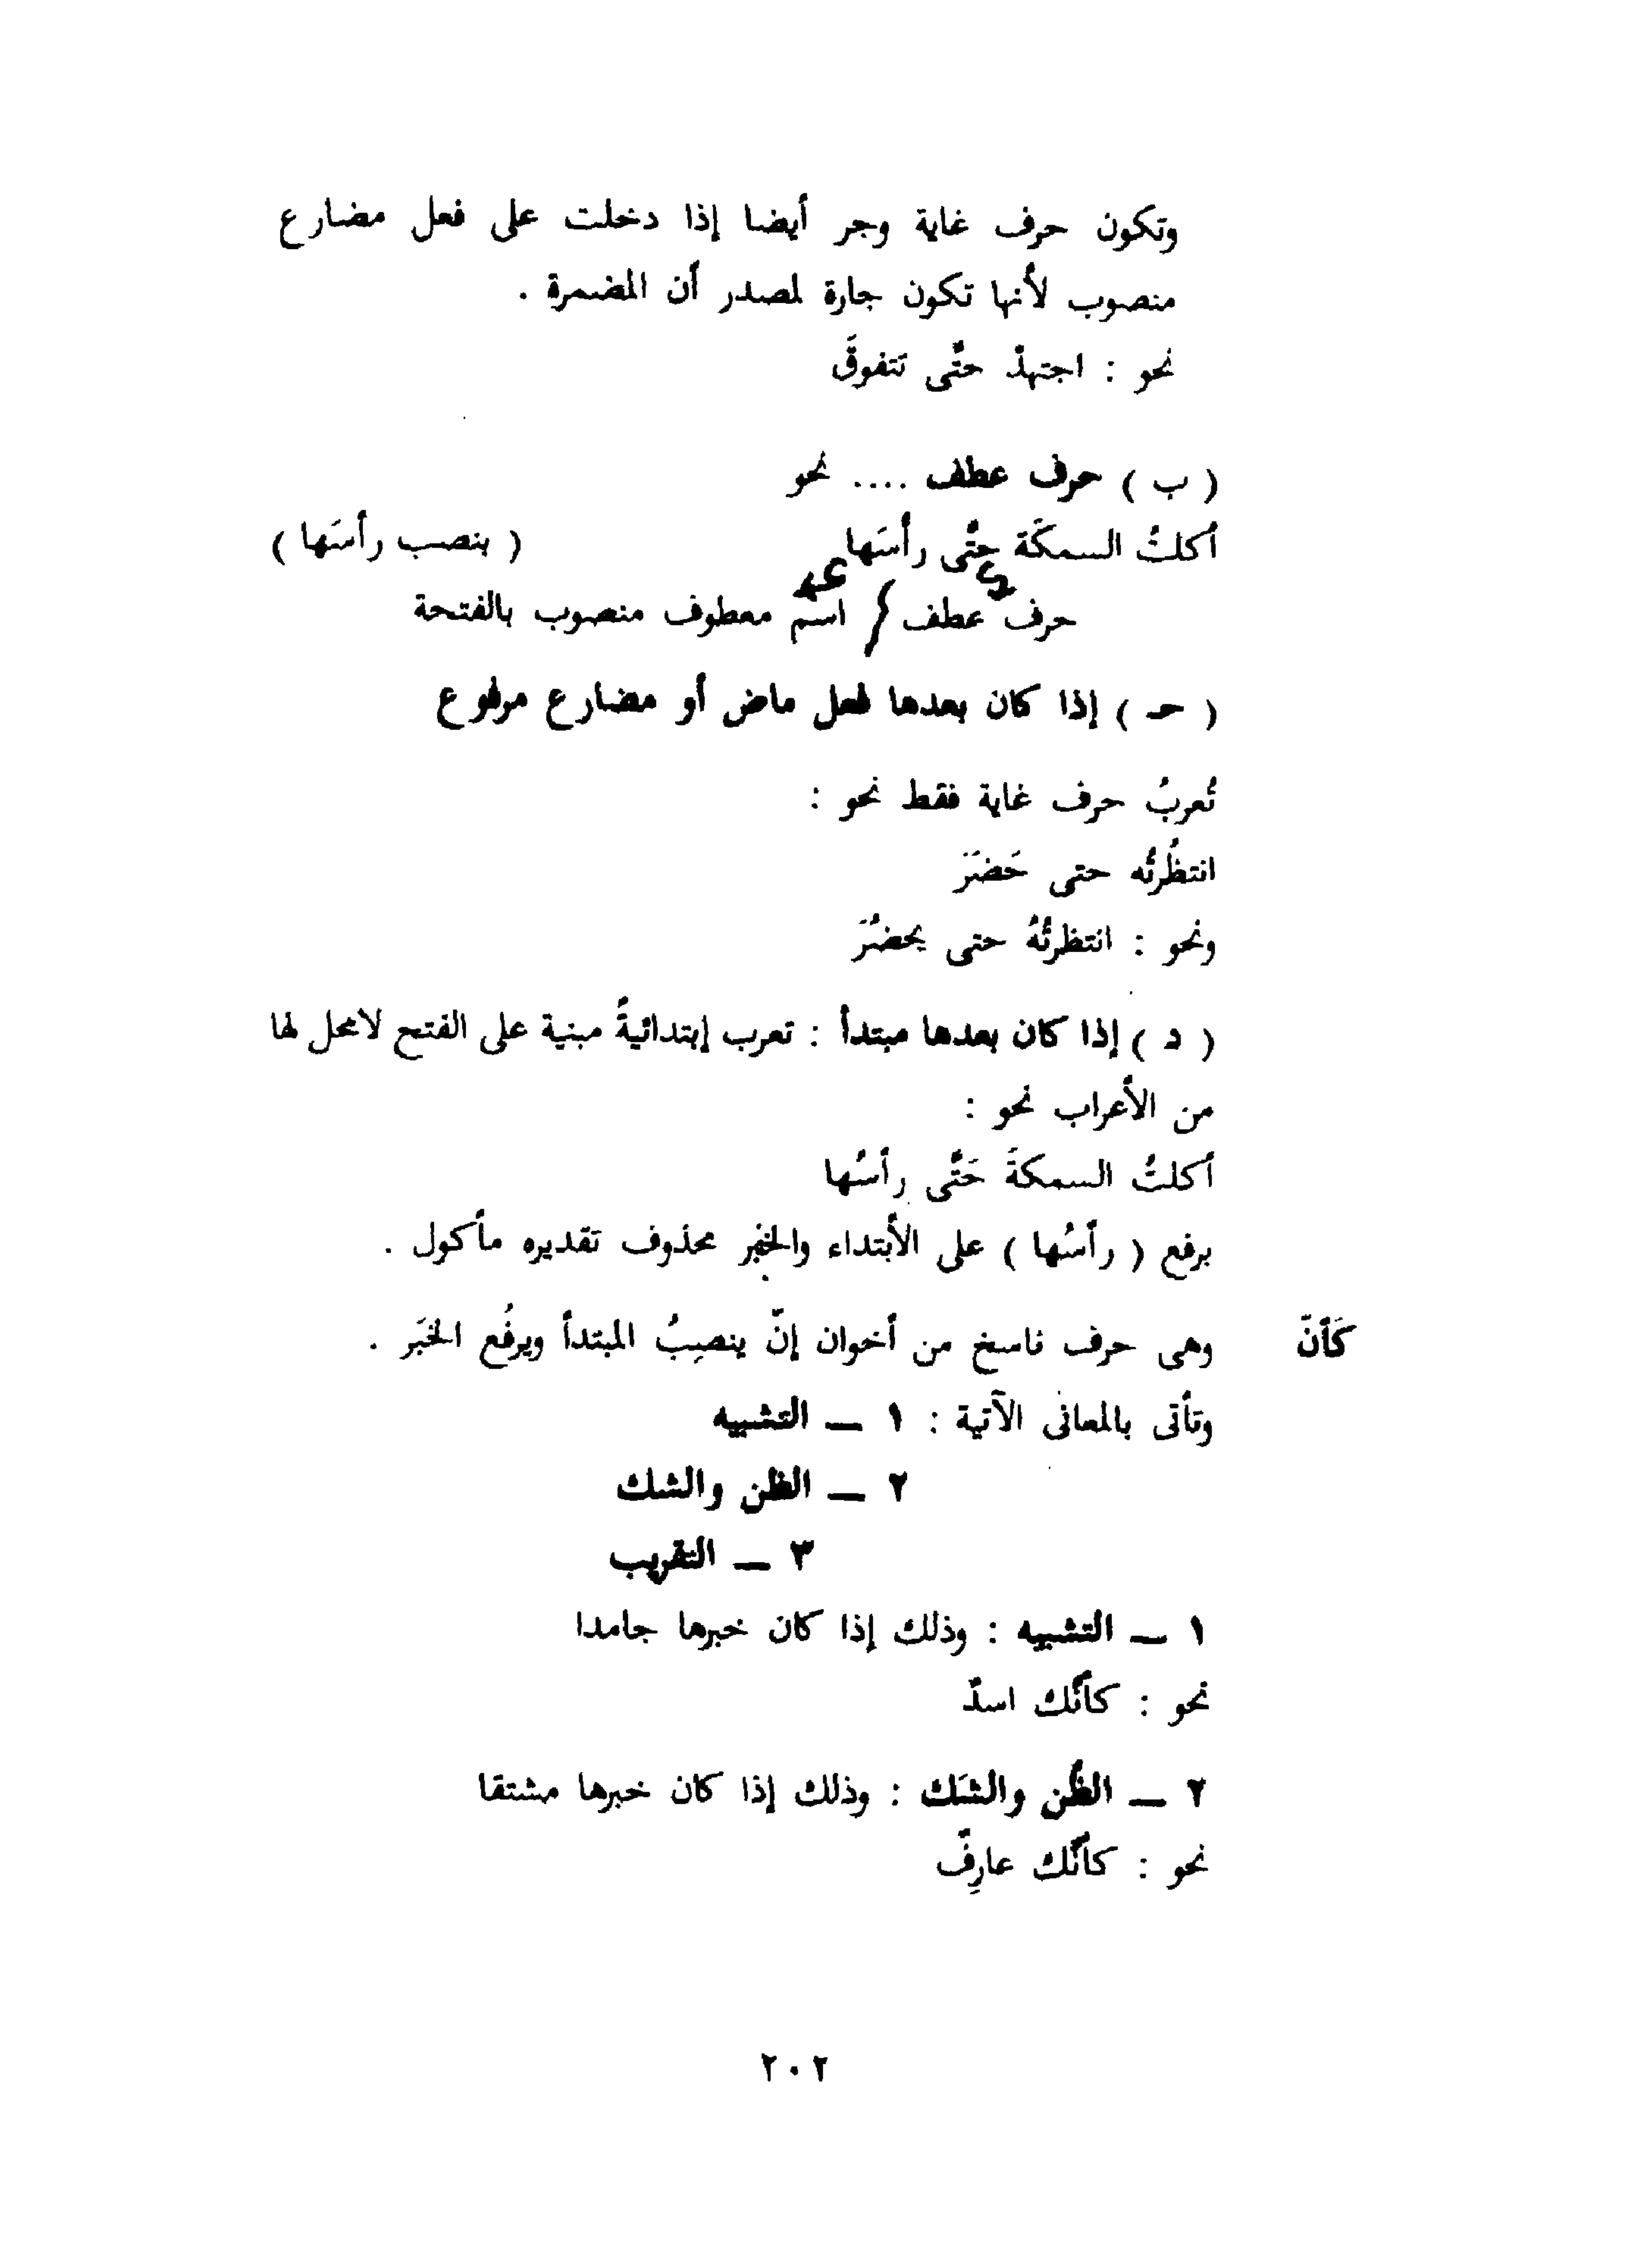 وتكون حرف غاية وجر أيضا إذا دخلت على فعل مضارع
منصوب لأنها تكون جارة لمصدر أن المضمرة .
نحو : اجتهدْ حتَّى تتفوقَ
( ب ) حرف عطف .... نحو
أكلتُ السمكَة حتَّى رأسَها ( بنصب رأسَها )
حرف عطف / اسم معطوف منصوب بالفتحة
( حـ ) إذا كان بعدها فعل ماض أو مضارع مرفوع
تُعربُ حرف غاية فقط نحو :
انتظُرتُه حتى حَضَرَ
ونحو : انتظرتُهُ حتى يحضُرَ
( د ) إذا كان بعدها مبتدأ : تعرب إبتدائيةً مبنية على الفتح لامحل لها
من الأعراب نحو :
أكلتُ السمكةَ حَتَّى رأسُها
برفع ( رأسُها ) على الأبتداء والخبر محذوف تقديره مأكول .
كَأنّ وهى حرف ناسخ من أخوان إنّ ينصِبُ المبتدأ ويرفُع الخَبَر .
وتأتى بالمعانى الآتية : ١ ــ التشبيه
٢ ــ الظن والشك
٣ ــ التقريب
١ ــ التشبيه : وذلك إذا كان خبرها جامدا
نحو : كأنَّك اسدٌ
٢ ــ الظَّن والشَك : وذلك إذا كان خبرها مشتقا
نحو : كأنَّك عارِفٌ
٢٠٢